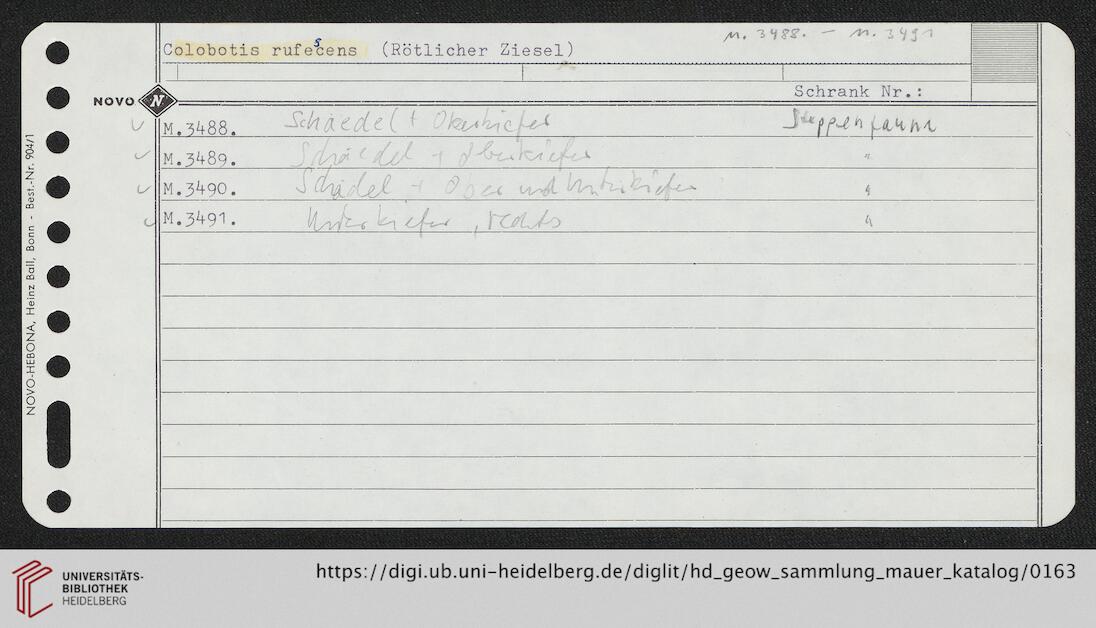 M. 3488. – M. 3491
Colobotis rufescens (Rötlicher Ziesel)
Schrank Nr.:
NOVO N
M.3488. Schaedel + Oberkiefer Steppenfauna
M.3489. Schädel + Oberkiefer "
M.3490. Schädel + Ober und Unterkiefer "
M.3491. Unterkiefer, rechts "
NOVO-HEBONA, Heinz Ball, Bonn - Best.-Nr. 904/1
UNIVERSITÄTS-
BIBLIOTHEK
HEIDELBERG
https://digi.ub.uni-heidelberg.de/diglit/hd_geow_sammlung_mauer_katalog/0163